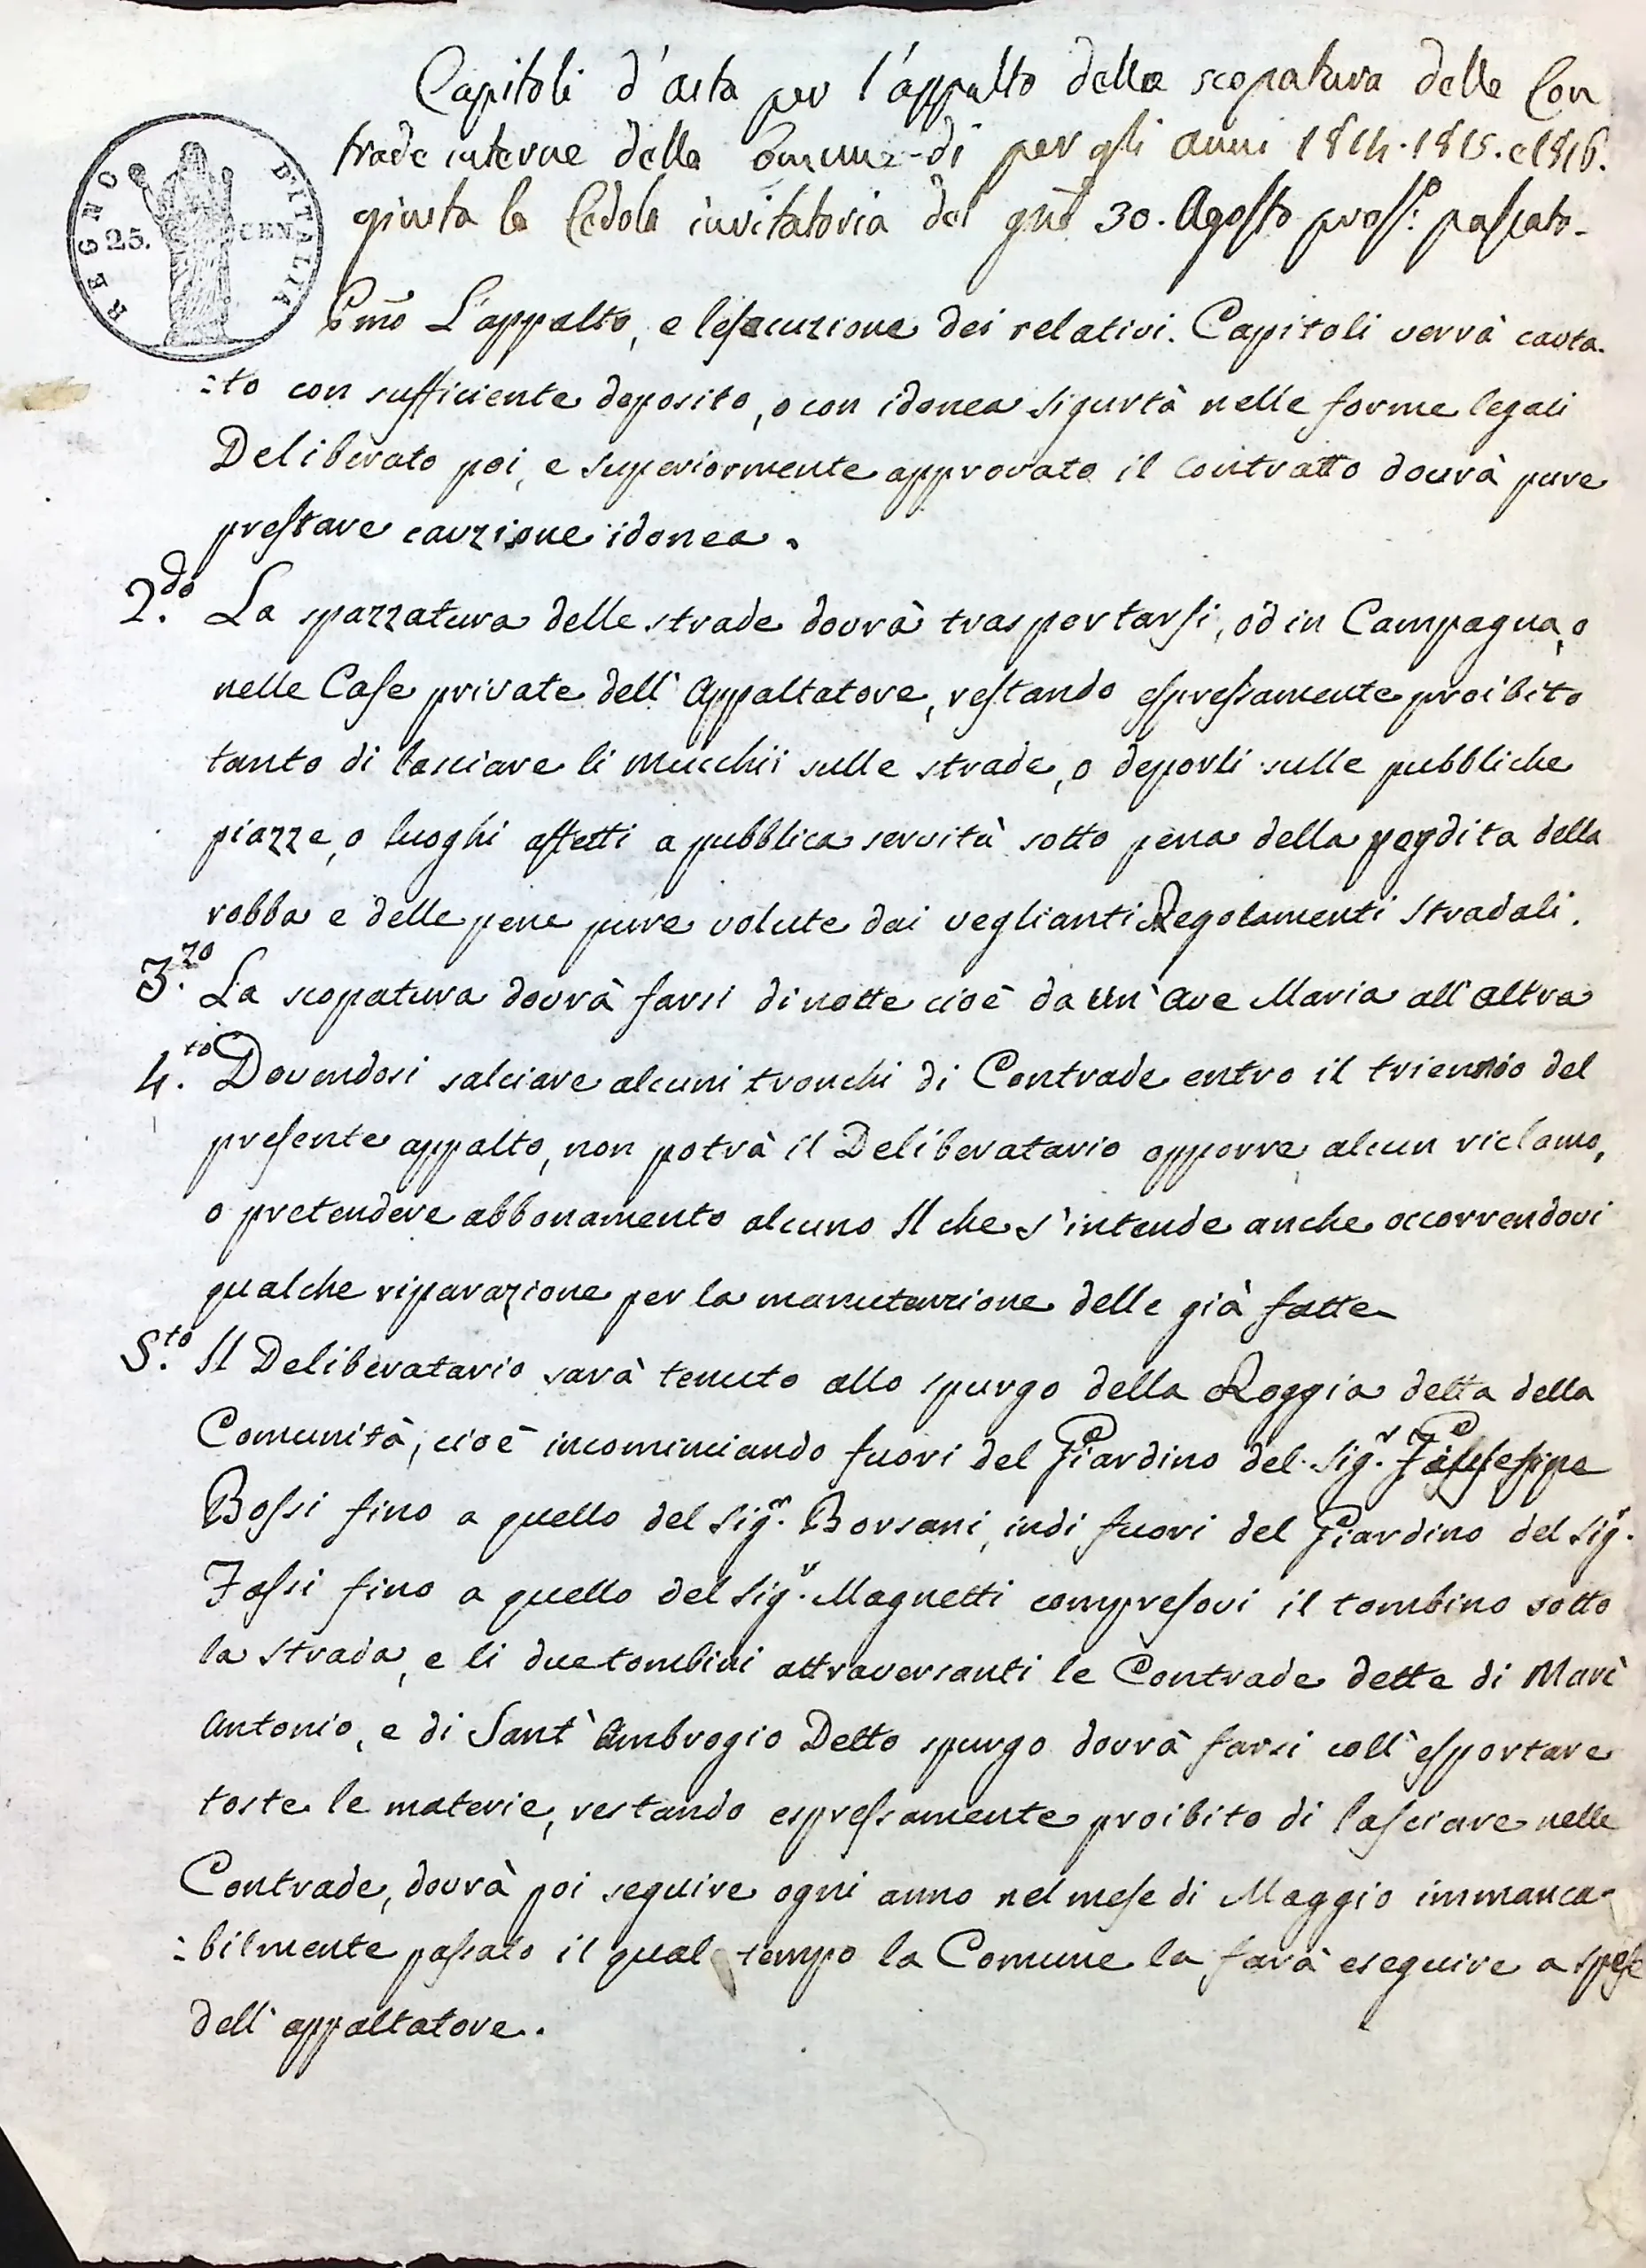 Capitoli d'asta per l'appalto della scopatura delle Con
trade interne della Comune di per gli anni 1814. 1815. e 1816.
giusta la Cedola invitatoria del gno 30. Agosto pross.o passato.
REGNO D'ITALIA
25. CEN.
P.mo L'appalto, e l'esecuzione dei relativi Capitoli verrà cauta-
:to con sufficiente deposito, o con idonea sigurtà nelle forme legali
Deliberato poi, e superiormente approvato il contratto dovrà pure
prestare cauzione idonea.
2.do La spazzatura delle strade dovrà trasportarsi, od in Campagna, o
nelle Case private dell'Appaltatore, restando espressamente proibito
tanto di lasciare li mucchii sulle strade, o deporli sulle pubbliche
piazze, o luoghi affetti a pubblica servitù sotto pena della perdita della
robba e delle pene pure volute dai veglianti Regolamenti Stradali.
3.zo La scopatura dovrà farsi di notte cioè da un'Ave Maria all'altra
4.to Dovendosi salciare alcuni tronchi di Contrade entro il triennio del
presente appalto, non potrà il Deliberatario opporre alcun riclamo,
o pretendere abbonamento alcuno Il che s'intende anche occorrendovi
qualche riparazione per la manutenzione delle già fatte
5.to Il Deliberatario sarà tenuto allo spurgo della Roggia detta della
Comunità, cioè incominciando fuori del Giardino del Sig.r Giuseppe
Bossi fino a quello del Sig.r Borsani, indi fuori del Giardino del Sig.r
Fossi fino a quello del Sig.r Magnetti compresovi il tombino sotto
la Strada, e li due tombini attraversanti le Contrade dette di Marc'
Antonio, e di Sant'Ambrogio Detto spurgo dovrà farsi coll'esportare
toste le materie, restando espressamente proibito di lasciare nelle
Contrade, dovrà poi seguire ogni anno nel mese di Maggio immanca-
:bilmente passato il qual tempo la Comune la farà eseguire a spese
dell'appaltatore.